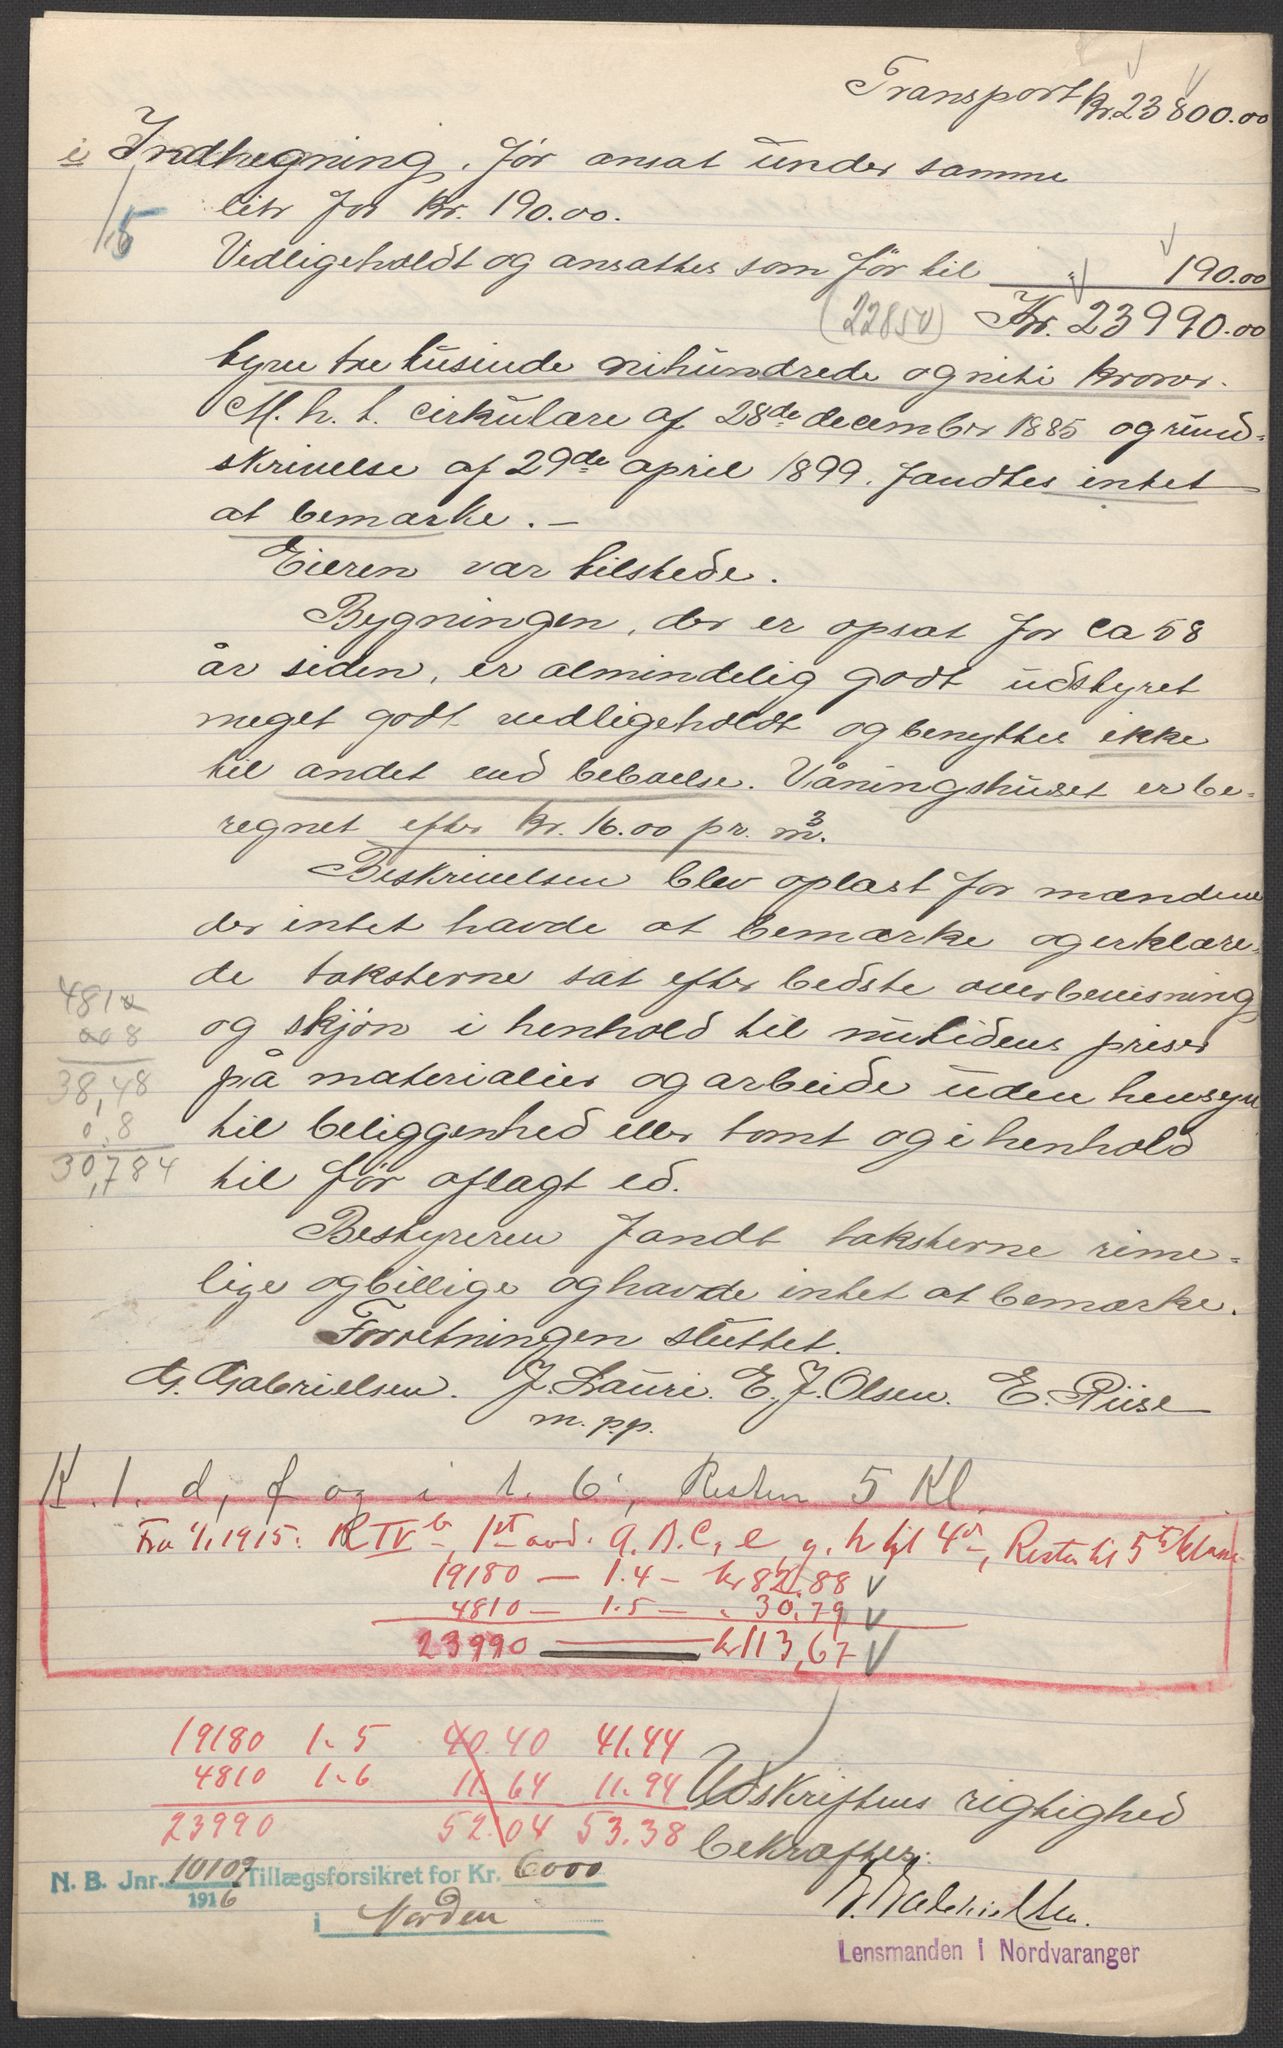 Transport Kr. 23 800.00
i, Indhegning, før ansat under samme
litr for Kr. 190.00.
Vedligeholdt og ansattes som før til " 190.00
(22850) Kr. 23990.00
tyve tre tusinde nihundrede og niti kroner.
M. h. t. cirkulære af 28de december 1885 og rund-
skrivelse af 29de april 1899. fandtes intet
at bemærke. –
Eieren var tilstede.
Bygningen, der er opsat for ca 58
år siden, er almindelig godt udstyret
meget godt vedligeholdt og benyttes ikke
til andet end beboelse. Våningshuset er be-
regnet efter kr. 16.00 pr. m3.
Beskrivelsen blev oplæst for mændene
der intet havde at bemærke og erklære-
de taksterne sat efter bedste overbevisning
og skjøn i henhold til nutidens priser
på materialier og arbeide uden hensyn
til beliggenhed eller tomt og i henhold
til før aflagt ed.
Bestyreren fandt taksterne rime-
lige og billige og havde intet at bemærke.
Forretningen sluttet.
G. Gabrielsen. J. Lauri. E. J. Olsen. E. Riise
m. p.p.
15
481
8
38,48
0,8
30,784
K. 1. d, f og i t. 6, Resten 5 Kl.
Fra 1/1 1915: R IV b, 1st avd. a. b. c, e, g, h kl 4de, Resten til 5te klasse
19180 — 1.4 — kr 82.88
4810 — 1.5 — " 30.79
23990 — kr 113,67
19180 1-5 40.40 41.44
4810 1-6 11.64 11.94
23990 52.04 53.38
Udskriftens rigtighed
bekræftes:
N. B. Jnr. 10109 Tillægsforsikret for Kr. 6000
1916
i Norden
Lensmanden i Nordvaranger